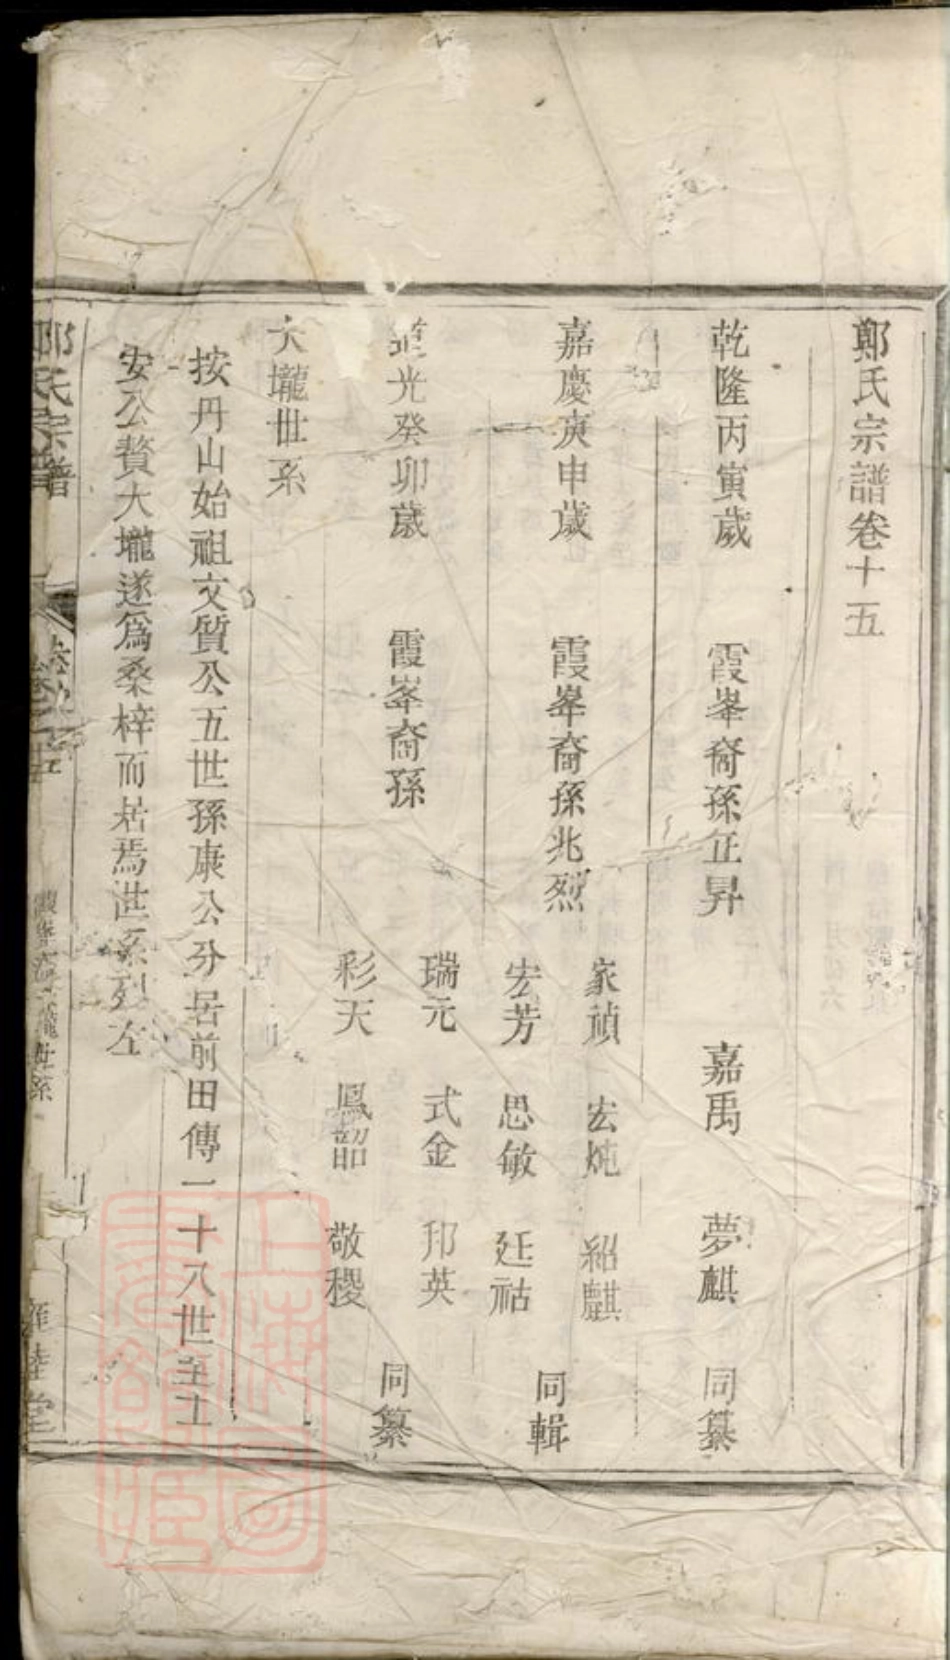 鄭氏宗譜卷十五
乾隆丙寅歲 霞峯裔孫正昇 嘉禹 夢麒 同纂
嘉慶庚申歲 霞峯裔孫兆烈 家禎 宏炖 紹麒
宏芳 思敏 廷祜 同輯
道光癸卯歲 霞峯裔孫 瑞元 式金 邦英
彩天 鳳韶 敬稷 同纂
大壠世系
按丹山始祖文質公五世孫康公分居前田傳一十八世至士
安公贅大壠遂爲桑梓而居焉世系列左
鄭氏宗譜 卷之十五 大壠世系 雍睦堂
上海圖書館藏